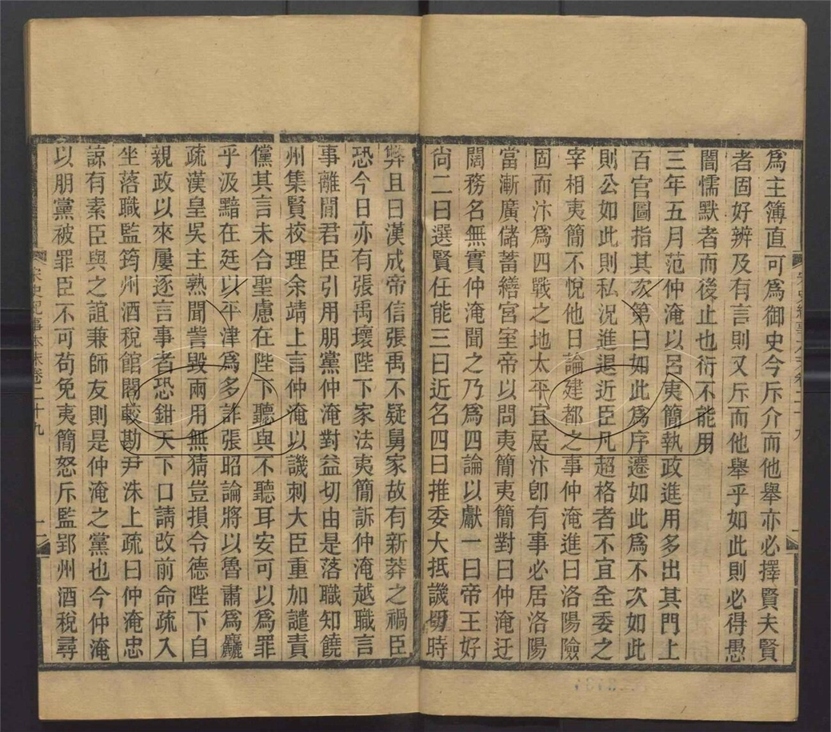 為主簿直可為御史今斥介而他舉亦必擇賢夫賢
者固好辨及有言則又斥而他舉乎如此則必得愚
闇懦默者而後止也衍不能用
三年五月范仲淹以呂夷簡執政進用多出其門上
百官圖指其次第曰如此為序遷如此為不次如此
則公如此則私況進退近臣凡超格者不宜全委之
宰相夷簡不悅他日論建都之事仲淹進曰洛陽險
固而汴為四戰之地太平宜居汴卽有事必居洛陽
當漸廣儲蓄繕宮室帝以問夷簡夷簡對曰仲淹迂
闊務名無實仲淹聞之乃為四論以獻一曰帝王好
尙二曰選賢任能三曰近名四曰推委大抵譏切時
弊且曰漢成帝信張禹不疑舅家故有新莽之禍臣
恐今日亦有張禹壞陛下家法夷簡訴仲淹越職言
事離閒君臣引用朋黨仲淹對益切由是落職知饒
州集賢校理余靖上言仲淹以譏刺大臣重加譴責
儻其言未合聖慮在陛下聽與不聽耳安可以為罪
乎汲黯在廷以平津為多詐張昭論將以魯肅為麤
疏漢皇吳主熟聞訾毀兩用無猜豈損令德陛下自
親政以來屢逐言事者恐鉗天下口請改前命疏入
坐落職監筠州酒稅館閣較勘尹洙上疏曰仲淹忠
諒有素臣與之誼兼師友則是仲淹之黨也今仲淹
以朋黨被罪臣不可苟免夷簡怒斥監郢州酒稅尋
宋史紀事本末卷二十九
一